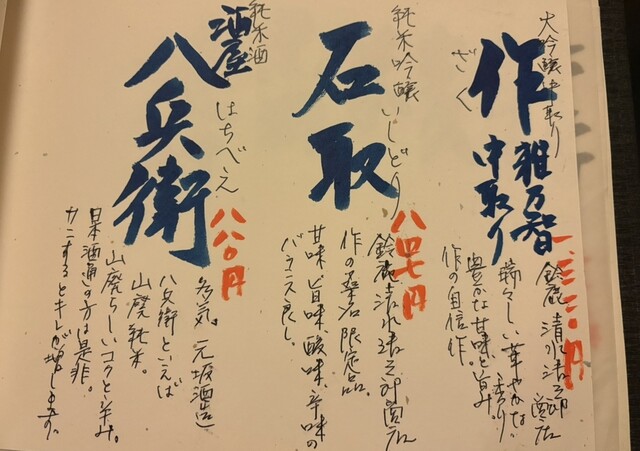 大吟醸中取り
作
ざく
雅乃智
中取り
一、三二〇円
鈴鹿 清水清三郎商店
瑞々しい華やかな香り
豊かな甘味と旨み。
作の自信作。
純米吟醸
石取
いしどり
八四七円
鈴鹿清水清三郎商店
作の桑名限定品。
甘味、旨味、酸味、辛味の
バランス良し。
純米酒
酒屋
八兵衛
はちべえ
八八〇円
多気。元坂酒造
八兵衛といえば
山廃純米。
山廃らしいコクと辛み。
日本酒通の方は是非。
カンするとキレが増します。